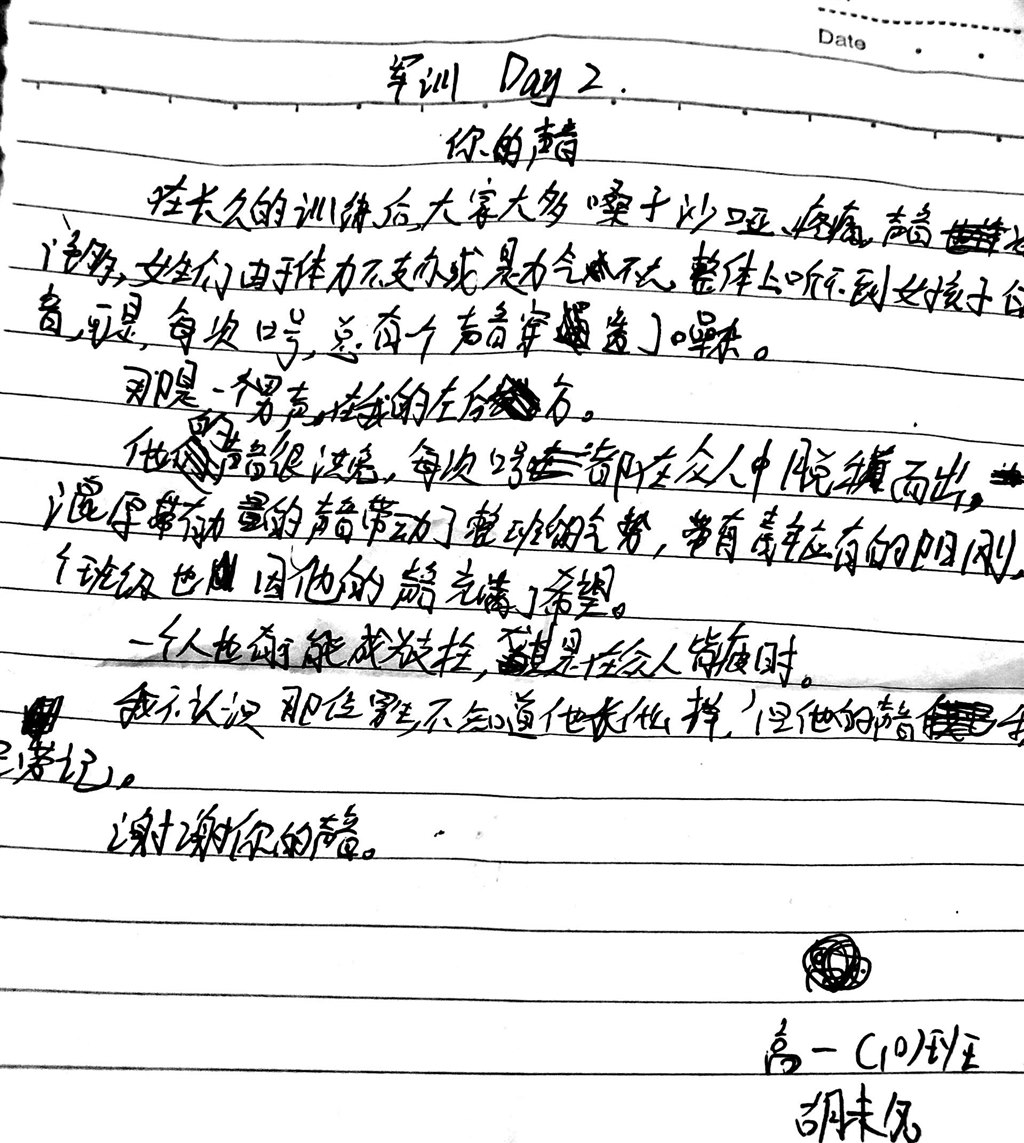 Date
军训 Day 2.
你的声音
在长久的训练后,大家大多嗓子沙哑、疼痛,声音
许多,女生们由于体力不支亦或是力气不大,整体上听不到女孩子
音,可是,每次口号,总有个声音穿透了噪杂。
那是一个男声,在我的左后方。
他的声音很洪亮,每次口号声都在众人中脱颖而出,
浑厚带有力量的声音带动了整班的气势,带有青年应有的阳刚,
个班级也因他的声音充满了希望。
一个人也能成为支柱,尤其是在众人皆疲时。
我不认识那位男生,不知道他长什么样,但他的声音
牢记。
谢谢你的声音。
高一(10)班
胡未